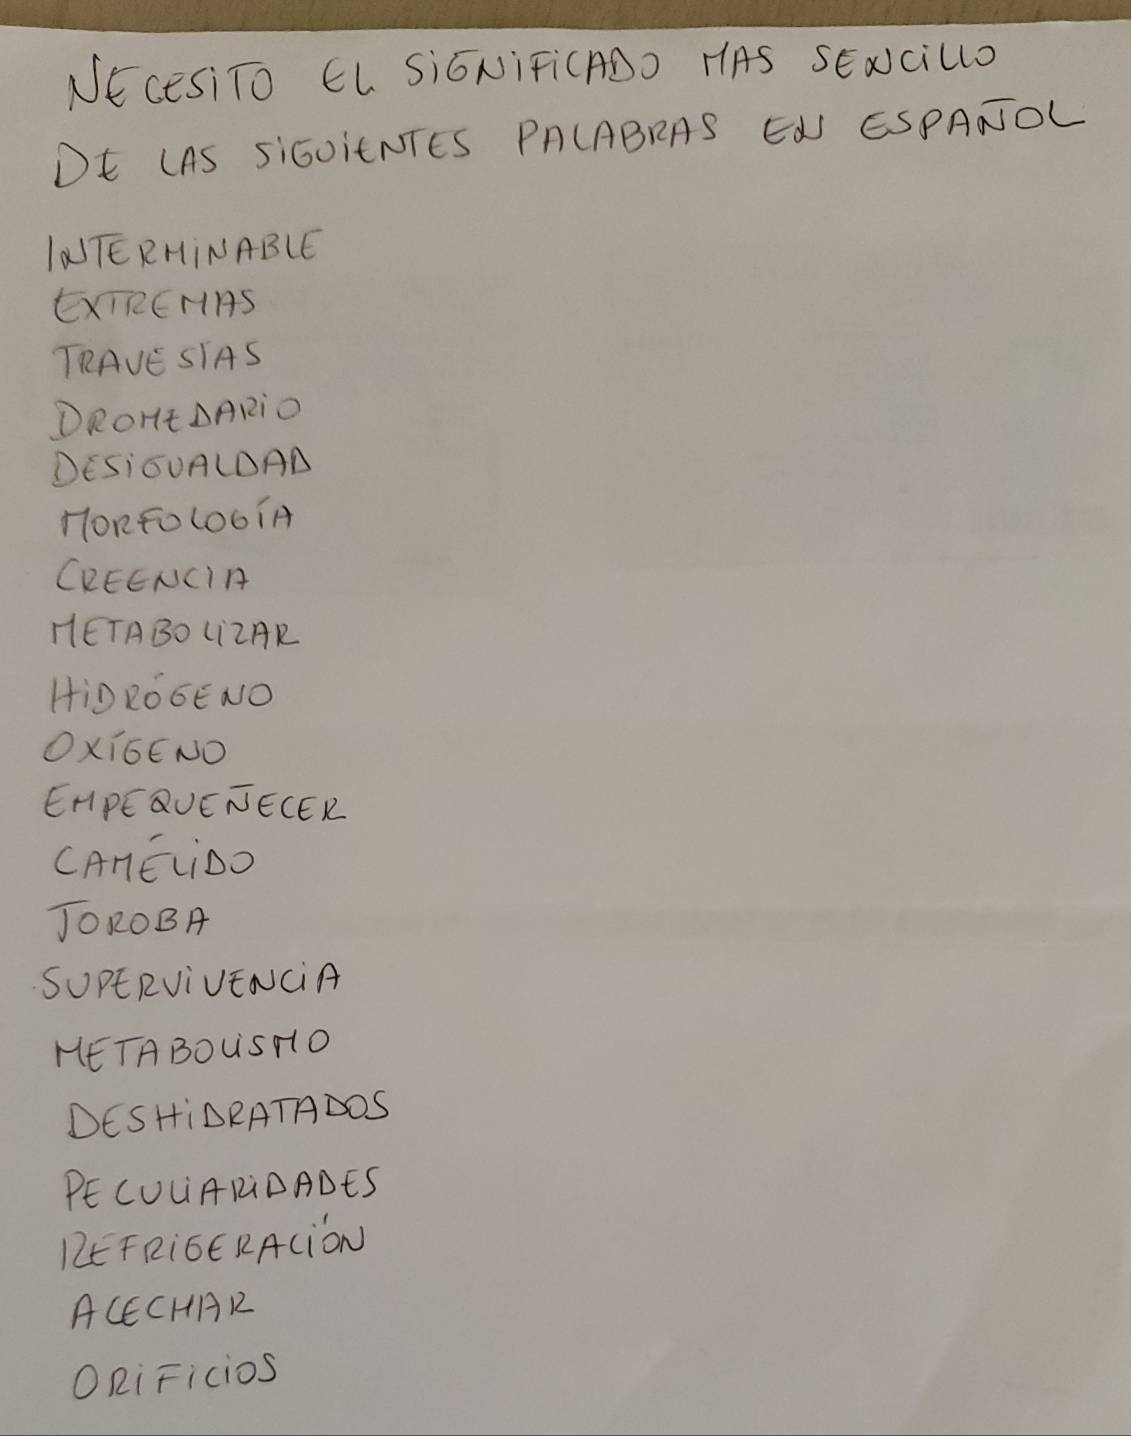 NECESITO EL SIGNIFICADO MAS SENCILLO
DE LAS SIGUIENTES PALABRAS EN ESPAÑOL
INTERMINABLE
EXTREMAS
TRAVESÍAS
DROMEDARIO
DESIGUALDAD
MORFOLOGÍA
CREENCIA
METABOLIZAR
HIDRÓGENO
OXÍGENO
EMPEQUEÑECER
CAMÉLIDO
JOROBA
SUPERVIVENCIA
METABOLISMO
DESHIDRATADOS
PECULIARIDADES
REFRIGERACIÓN
ACECHAR
ORIFICIOS